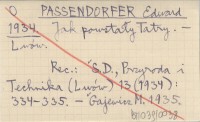 O PASSENDORFER Edward
1934. Jak powstały Tatry. —
Lwów.
Rec.: G.D., Przyroda i
Technika (Lwów) 13 (1934):
334-335. — Gajewicz M. 1935.